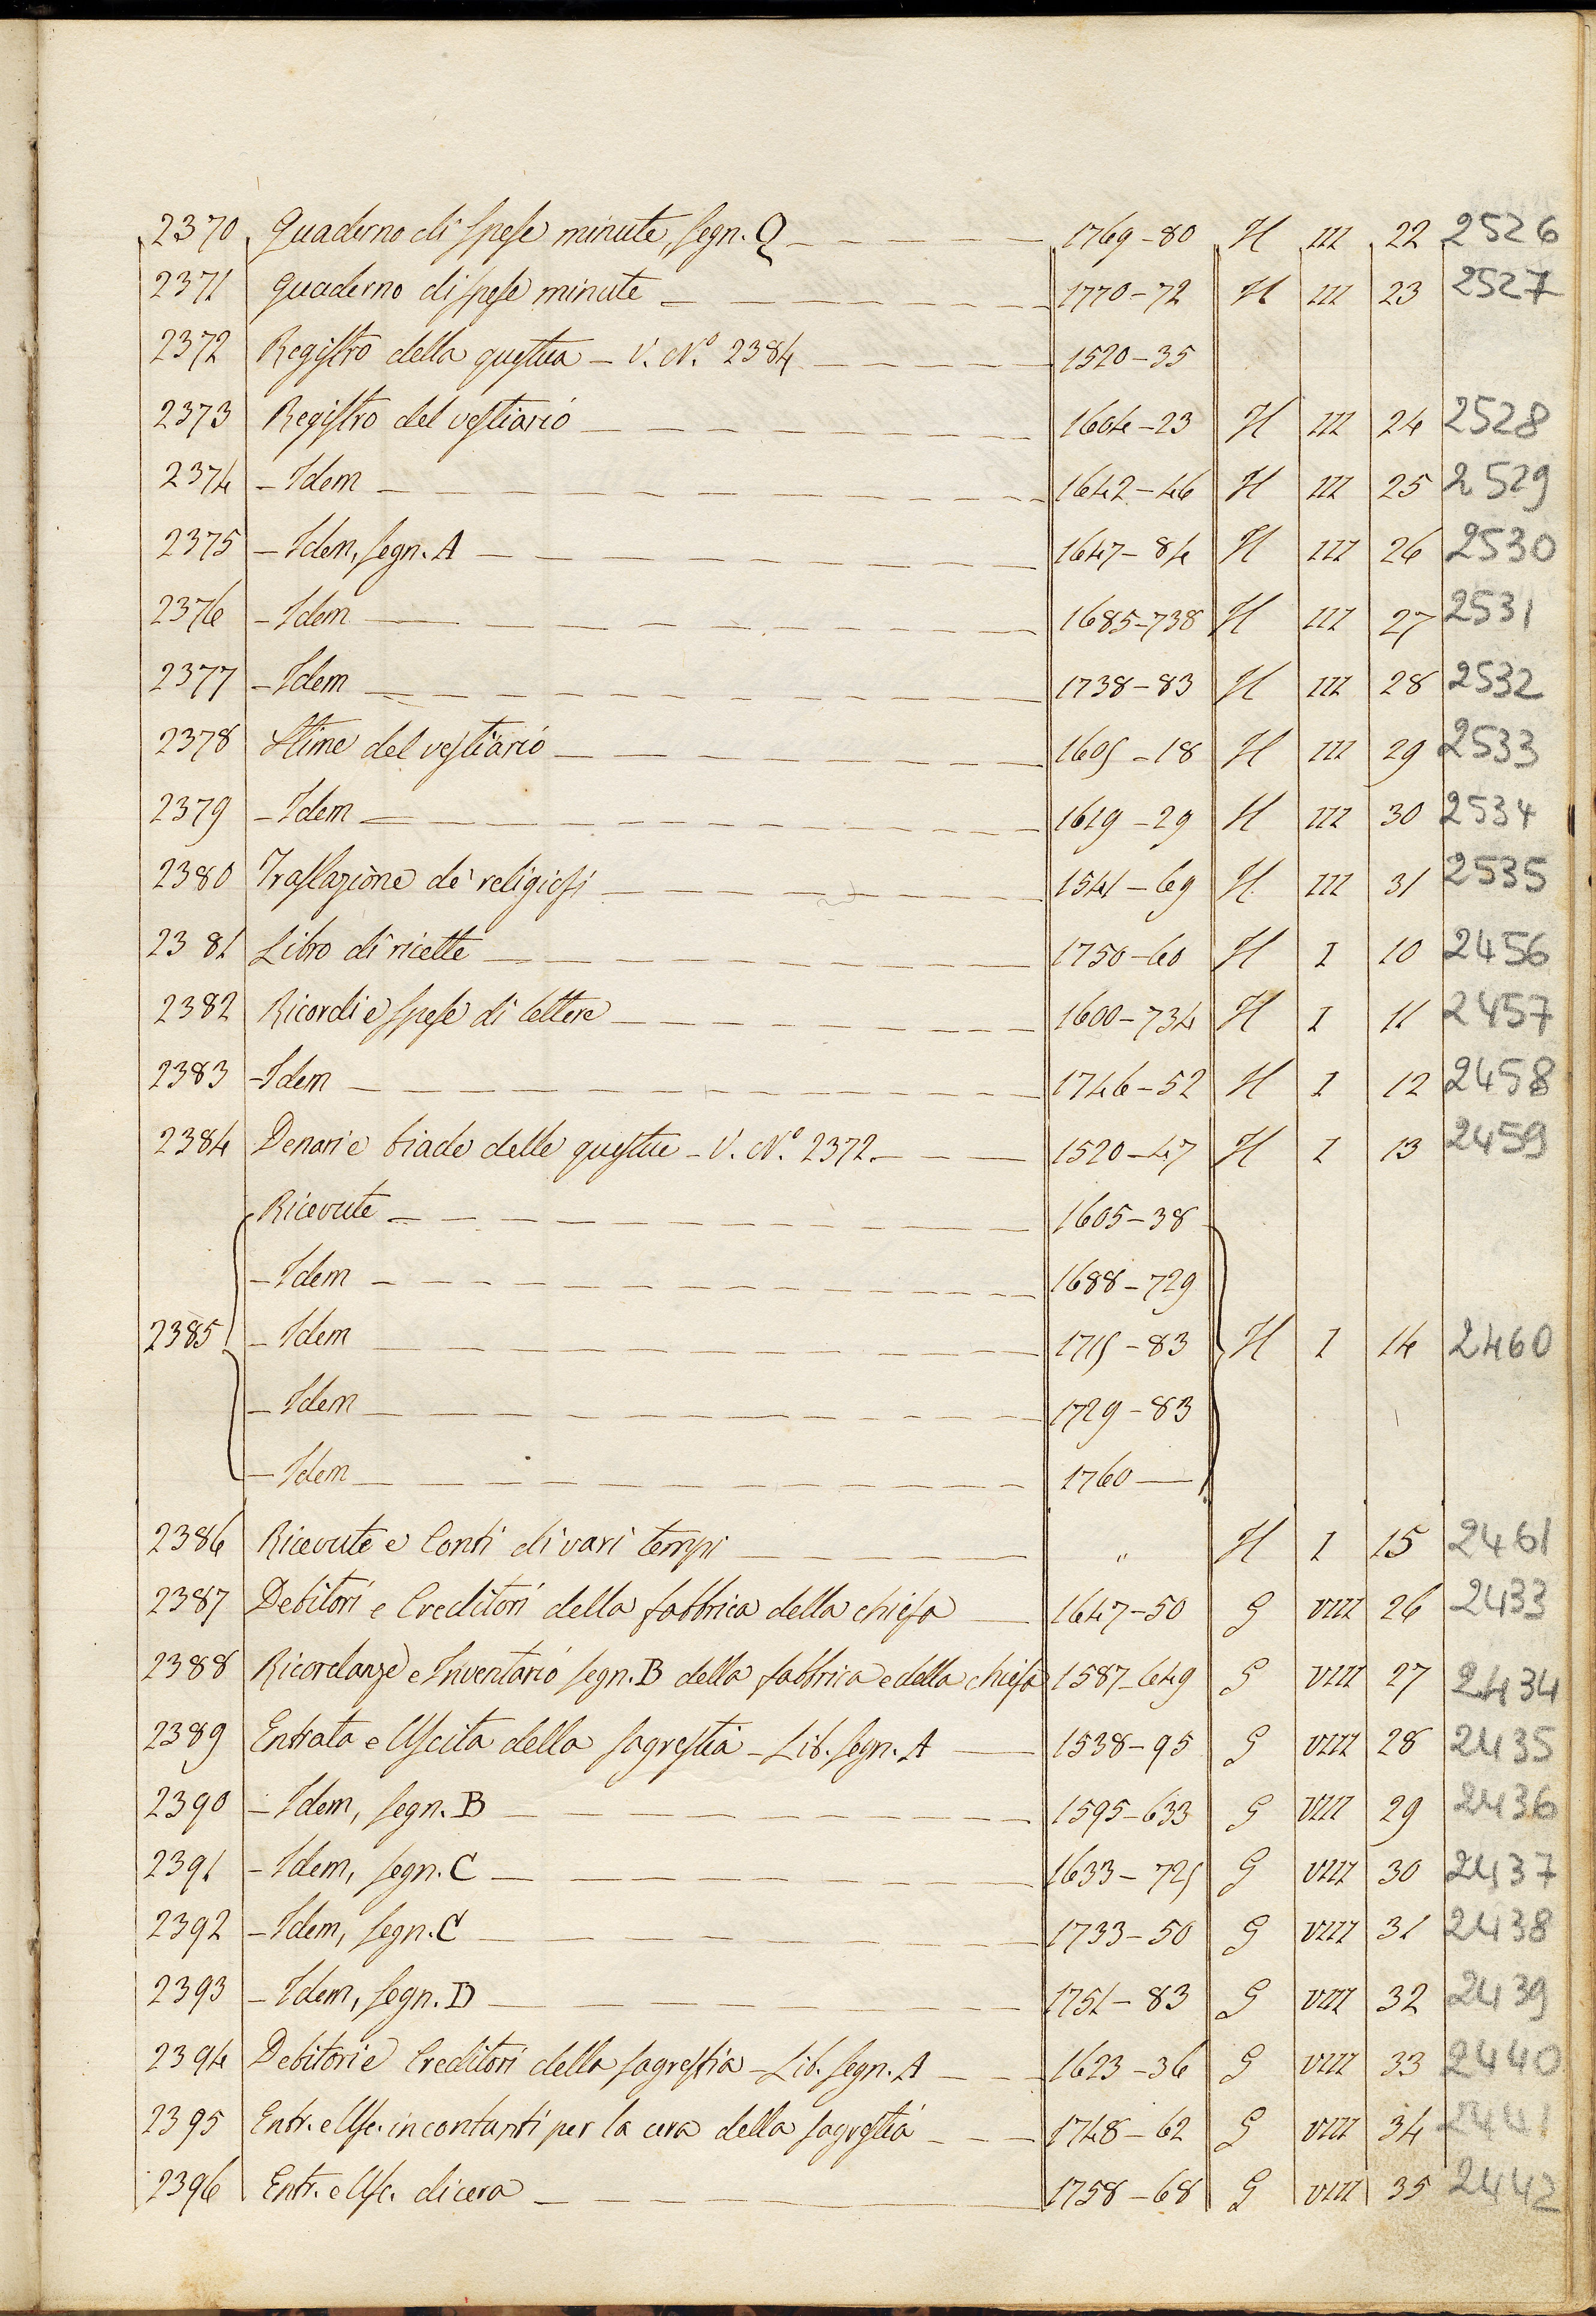 2370 Quaderno di spese minute, segn. Q 1769-80 H III 22 2526
2371 Quaderno di spese minute 1770-72 H III 23 2527
2372 Registro della questua - V. N.º 2384 1520-35
2373 Registro del vestiario 1604-23 H III 24 2528
2374 - Idem 1642-46 H III 25 2529
2375 - Idem, segn. A 1647-84 H III 26 2530
2376 - Idem 1685-738 H III 27 2531
2377 - Idem 1738-83 H III 28 2532
2378 Stime del vestiario 1605-18 H III 29 2533
2379 - Idem 1619-29 H III 30 2534
2380 Traslazione de' religiosi 1541-69 H III 31 2535
2381 Libro di ricette 1750-60 H I 10 2456
2382 Ricordi e spese di lettere 1600-734 H I 11 2457
2383 - Idem 1746-52 H I 12 2458
2384 Denari e biade delle questue - V. N.º 2372. 1520-47 H I 13 2459
Ricevute 1605-38
- Idem 1688-729
2385 - Idem 1715-83 H I 14 2460
- Idem 1729-83
- Idem 1760
2386 Ricevute e Conti di vari tempi " H I 15 2461
2387 Debitori e Creditori della fabbrica della chiesa 1647-50 G VIII 26 2433
2388 Ricordanze e Inventario segn. B della fabbrica e della chiesa 1587-649 G VIII 27 2434
2389 Entrata e Uscita della sagrestia - Lib. segn. A 1538-95 G VIII 28 2435
2390 - Idem, segn. B 1595-633 G VIII 29 2436
2391 - Idem, segn. C 1633-725 G VIII 30 2437
2392 - Idem, segn. C 1733-50 G VIII 31 2438
2393 - Idem, segn. D 1751-83 G VIII 32 2439
2394 Debitori e Creditori della sagrestia - Lib. segn. A 1623-36 G VIII 33 2440
2395 Entr. e Usc. in contanti per la cera della sagrestia 1748-62 G VIII 34 2441
2396 Entr. e Usc. di cera 1758-68 G VIII 35 2442